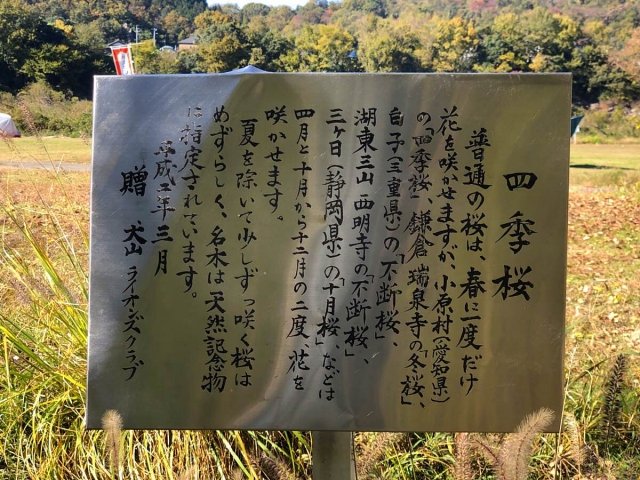 四季桜
普通の桜は、春に一度だけ
花を咲かせますが、小原村(愛知県)
の「四季桜」、鎌倉 瑞泉寺の「冬桜」、
白子(三重県)の「不断桜」、
湖東三山 西明寺の「不断桜」、
三ヶ日(静岡県)の「十月桜」などは
四月と十月から十二月の二度、花を
咲かせます。
夏を除いて少しずつ咲く桜は
めずらしく、名木は天然記念物
に指定されています。
平成二年三月
贈 犬山ライオンズクラブ